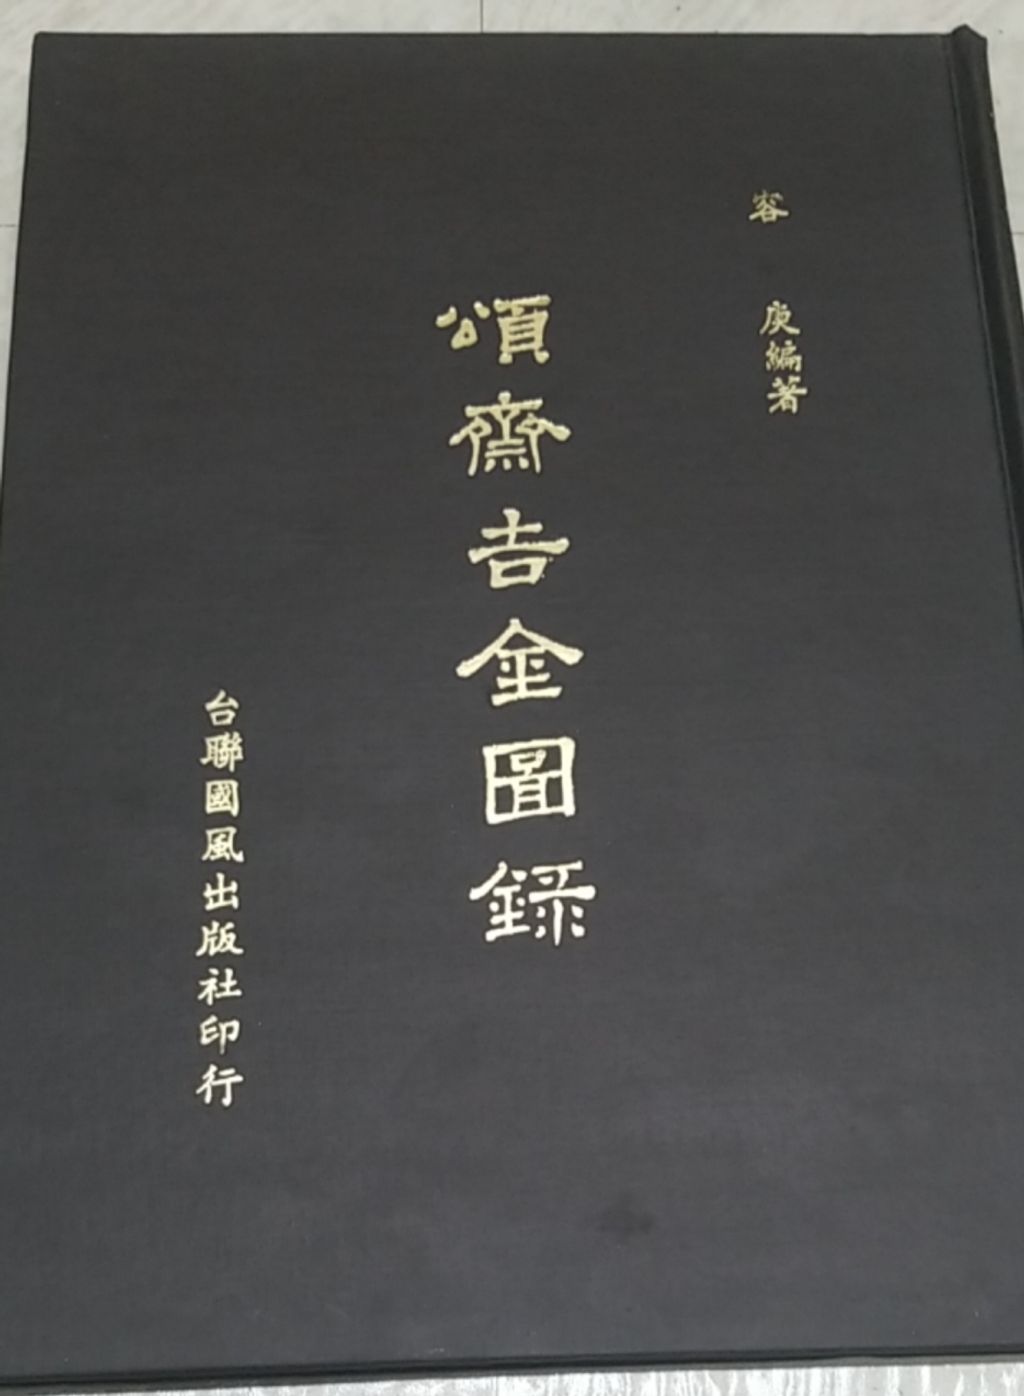 容庚編著
頌齋吉金圖錄
台聯國風出版社印行